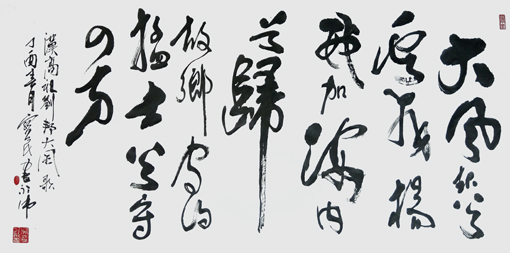 大风起兮
云飛楊
威加海内
兮歸
故鄉安得
猛士兮守
四方
漢高祖劉邦大风歌
丁酉春月